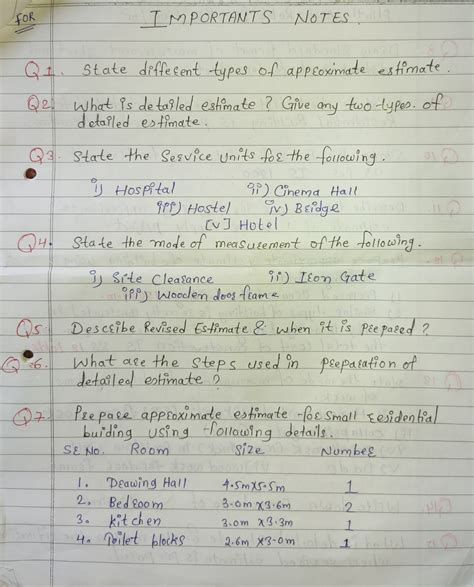 FOR
IMPORTANTS NOTES.
Q1. State different types of approximate estimate.
Q2. What is detailed estimate? Give any two types. of
detailed estimate.
Q3. State the Service units for the following.
i) Hospital ii) Cinema Hall
iii) Hostel iv) Bridge
[v] Hotel
Q4. State the mode of measurement of the following.
i) Site Clearance ii) Iron Gate
iii) Wooden door frame
Q5. Describe Revised Estimate & when it is prepared?
Q6. What are the steps used in preparation of
detailed estimate?
Q7. Prepare approximate estimate for small residential
buiding using following details.
SR. No. Room Size Number
1. Drawing Hall 4.5mx5.5m 1
2. Bedroom 3.0m x3.6m 2
3. Kitchen 3.0m x3.3m 1
4. Toilet blocks 2.6m x3.0m 1